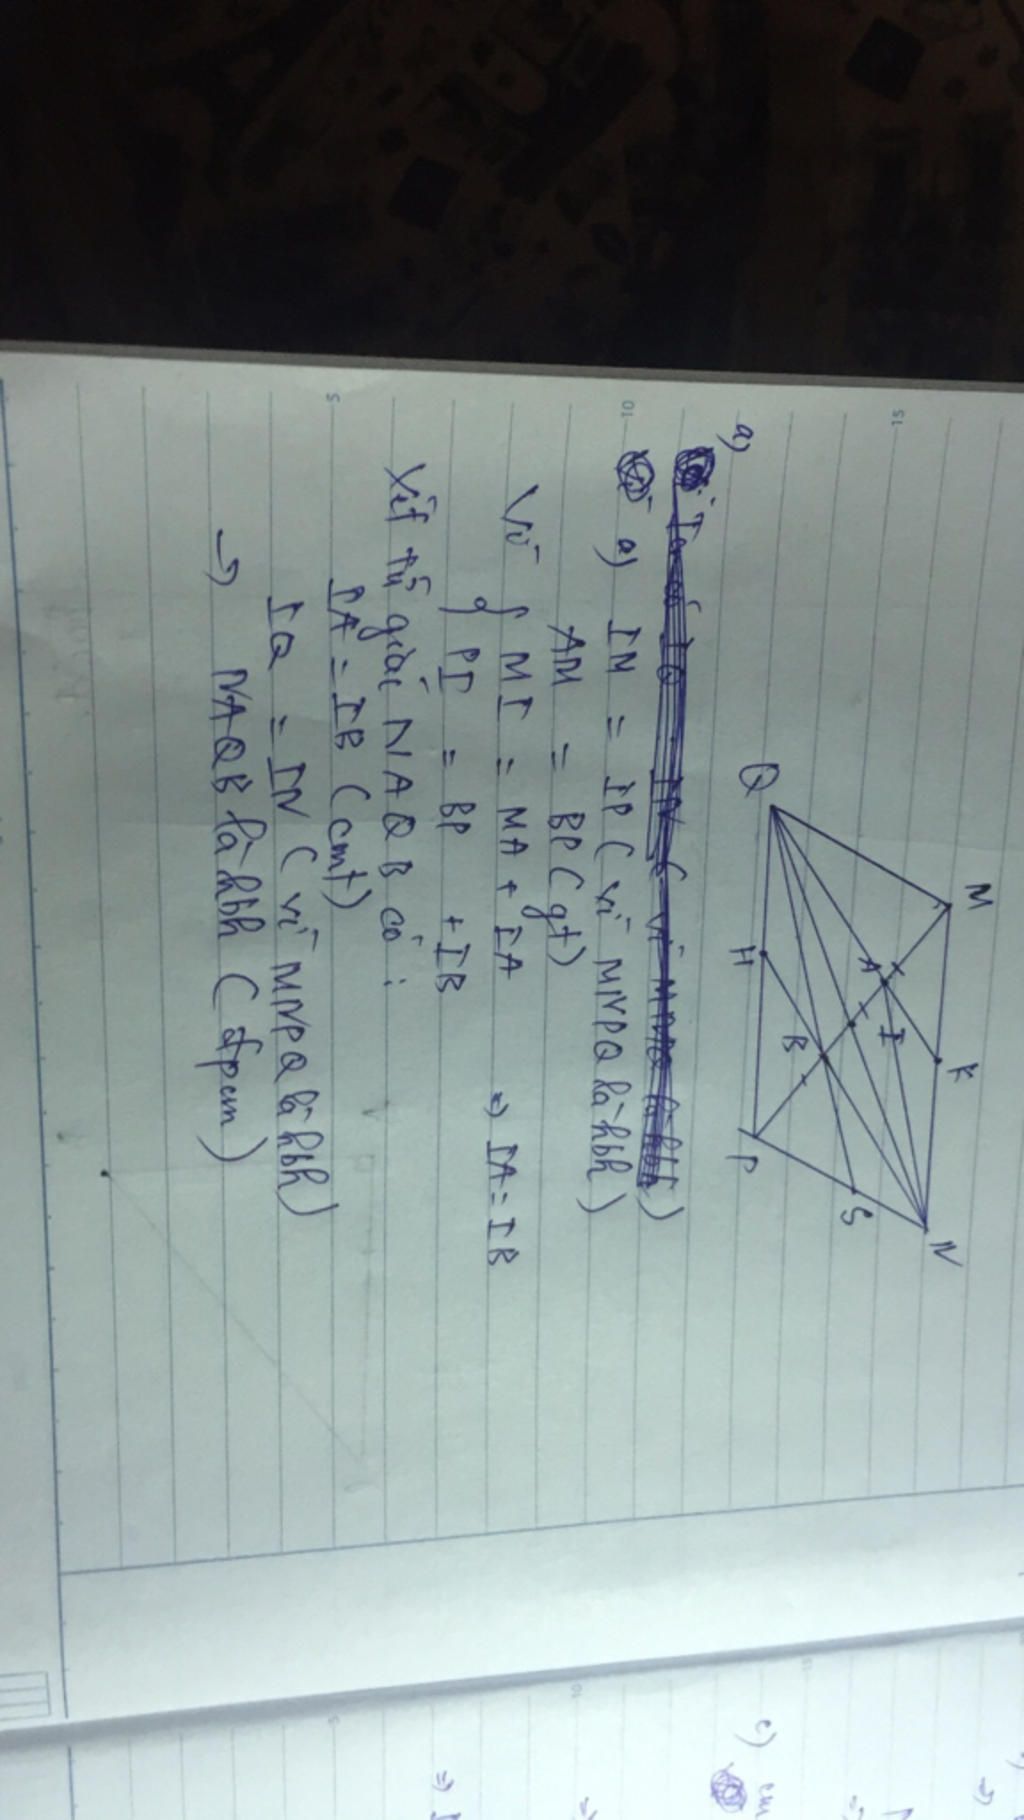 a)
M
K
N
A
I
B
S
Q
H
P
a) IM = IP ( vì MNPQ là hbh )
AM = BP ( gt )
Vì { MI = MA + IA
PI = BP + IB
=> IA = IB
Xét tứ giác NAQB có :
IA = IB ( cmt )
IQ = IN ( vì MNPQ là hbh )
→ NAQB là hbh ( đpcm )
15
10
5
15
10
5
c)
=>